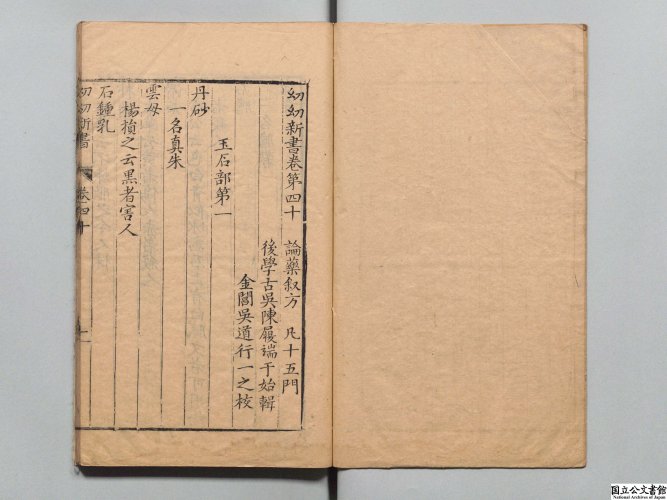 幼幼新書卷第四十　論藥叙方　凡十五門
後學古吳陳履端于始輯
金閶吳道行一之校
玉石部第一
丹砂
一名真朱
雲母
楊損之云黒者害人
石鍾乳
幼幼新書　卷四十　一
国立公文書館
National Archives of Japan